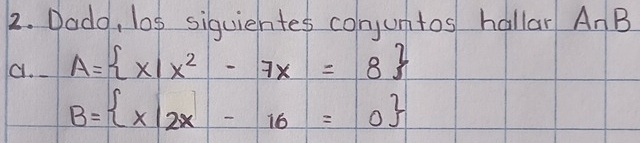 2. Dado, los siguientes conjuntos hallar A∩B
a.- A={x|x² - 7x = 8}
B={x|2x - 16 = 0}